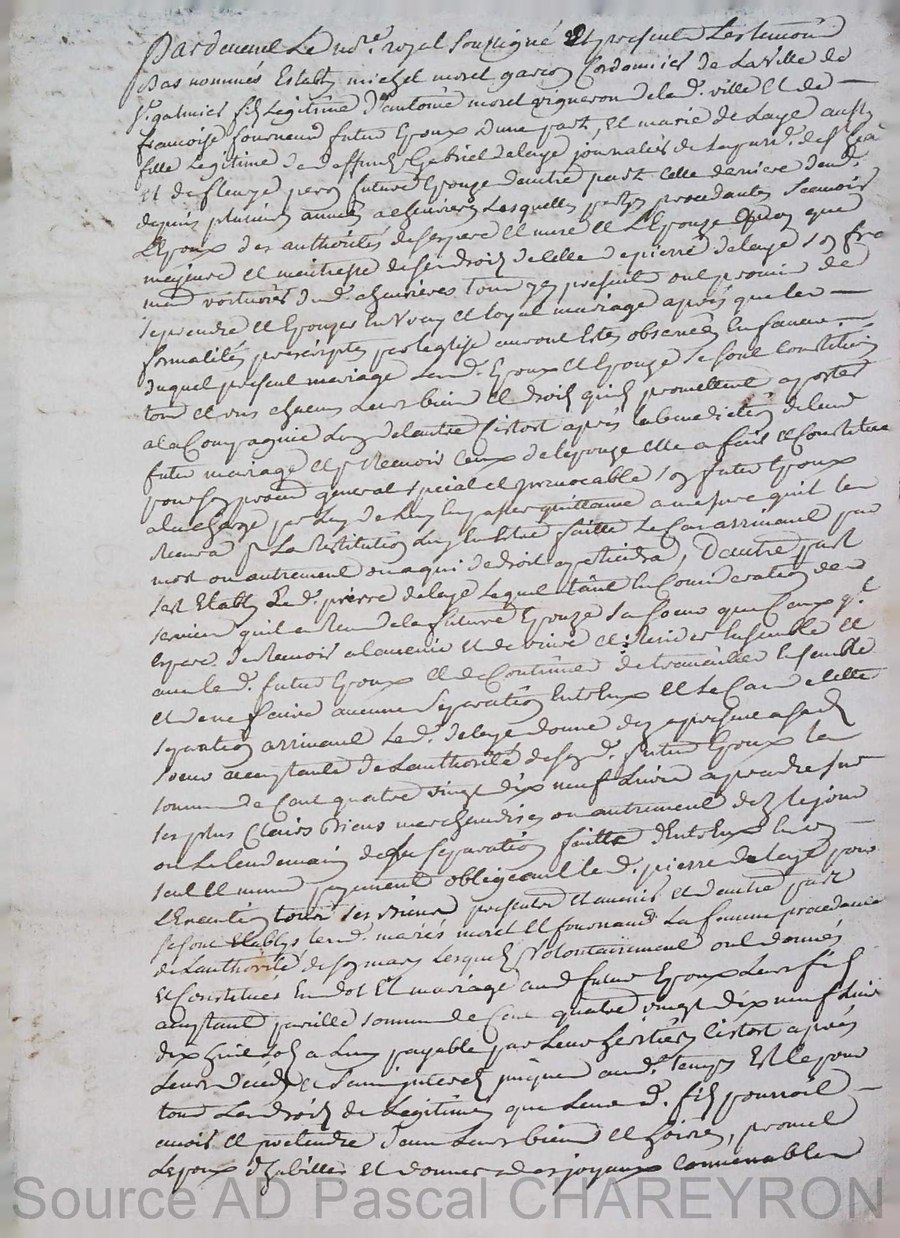 Pardevant Le nore. royal soussigné Et presents Les temoins
Bas nommés Establ michel morel garçon Cordonnier de La Ville de
st. galmier fils Legitime d'antoine morel vigneron de lad. ville et de
francoise fournand futur Epoux d'une part, Et marie de Laye aussy
fille Legitime de deffunt Gabriel delaye journalier de
Et de fleurye peron future Epouze d'autre part celle derniere dem.
depuis plusieurs années a chevrieres Lesquelles partyes procedantes Scavoir
L'Epoux des authorités de ses pere et mere et L'Epouze que
majeure et maitresse de ses droits de celle de pierre delaye son frere
voiturier dud. chevrieres tous icy presents ont promis de
se prendre et Epouzer en vray et loyal mariage après que les
formalités prescriptes par l'eglise auront Estés observées En faveur
duquel present mariage Lesd. Epoux et Epouze se sont constitués
tous et uns chacuns Leurs biens et droits qu'ils promettent apporter
a la Compagnie L'un de l'autre Cistost après la benediction de leur
futur mariage et pr. Recevoir Ceux de l'epouze elle a fait et Constitué
pour son procur. general special et irrevocable son futur Epoux
a la charge par Luy de Luy En passer quittance a mesure qu'il les
Recevra pr. La Restitution Luy En Estre faitte Le Cas arrivant par
mort ou autrement ou a qui de droit appartiendra, D'autre part
s'est Etably Led. pierre delaye Lequel tant En Consideration des
services qu'il a Receu de la future Epouze sa soeur que Ceux qu'il
espere de Recevoir a l'avenir et de vivre et Resider Ensemble et
avec led. futur Epoux et de Continuer de travailler Ensemble
et de ne faire aucune Separation Entr'Eux et Le Cas de cette
separation arrivant led. delaye donne dez a present a sad.
soeur acceptante de L'authorité de sond. futur Epoux la
somme de Cent quatre vingt dix neuf Livres a prendre sur
ses plus Clairs Biens marchandises ou autrement dez le jour
ou Le lendemain de leur separation faitte d'Entr'Eux En un
seul et meme payement obligeant led. pierre delaye pour
L'Execution tous ses Biens presents et avenir et d'autre part
se sont Etablys lesd. mariés morel et fournand La femme procedante
de L'authorité de son mary Lesquels Volontairement ont donnés
Et Constitués En dot et mariage aud. futur Epoux Leur fils
acceptant pareille somme de Cent quatre vingt dix neuf Livres
dix huit sols a Luy payable par Leurs heritiers Cistost après
Leurs deceds et sans interests jusques aud. temps Et le pour
tous Les droits de Legitimes que Leurd. fils pourroit
avoir et pretendre dans Leurs biens et hoiries, promet
L'epoux d'habiller et donner des joyaux convenables
Source AD Pascal CHAREYRON